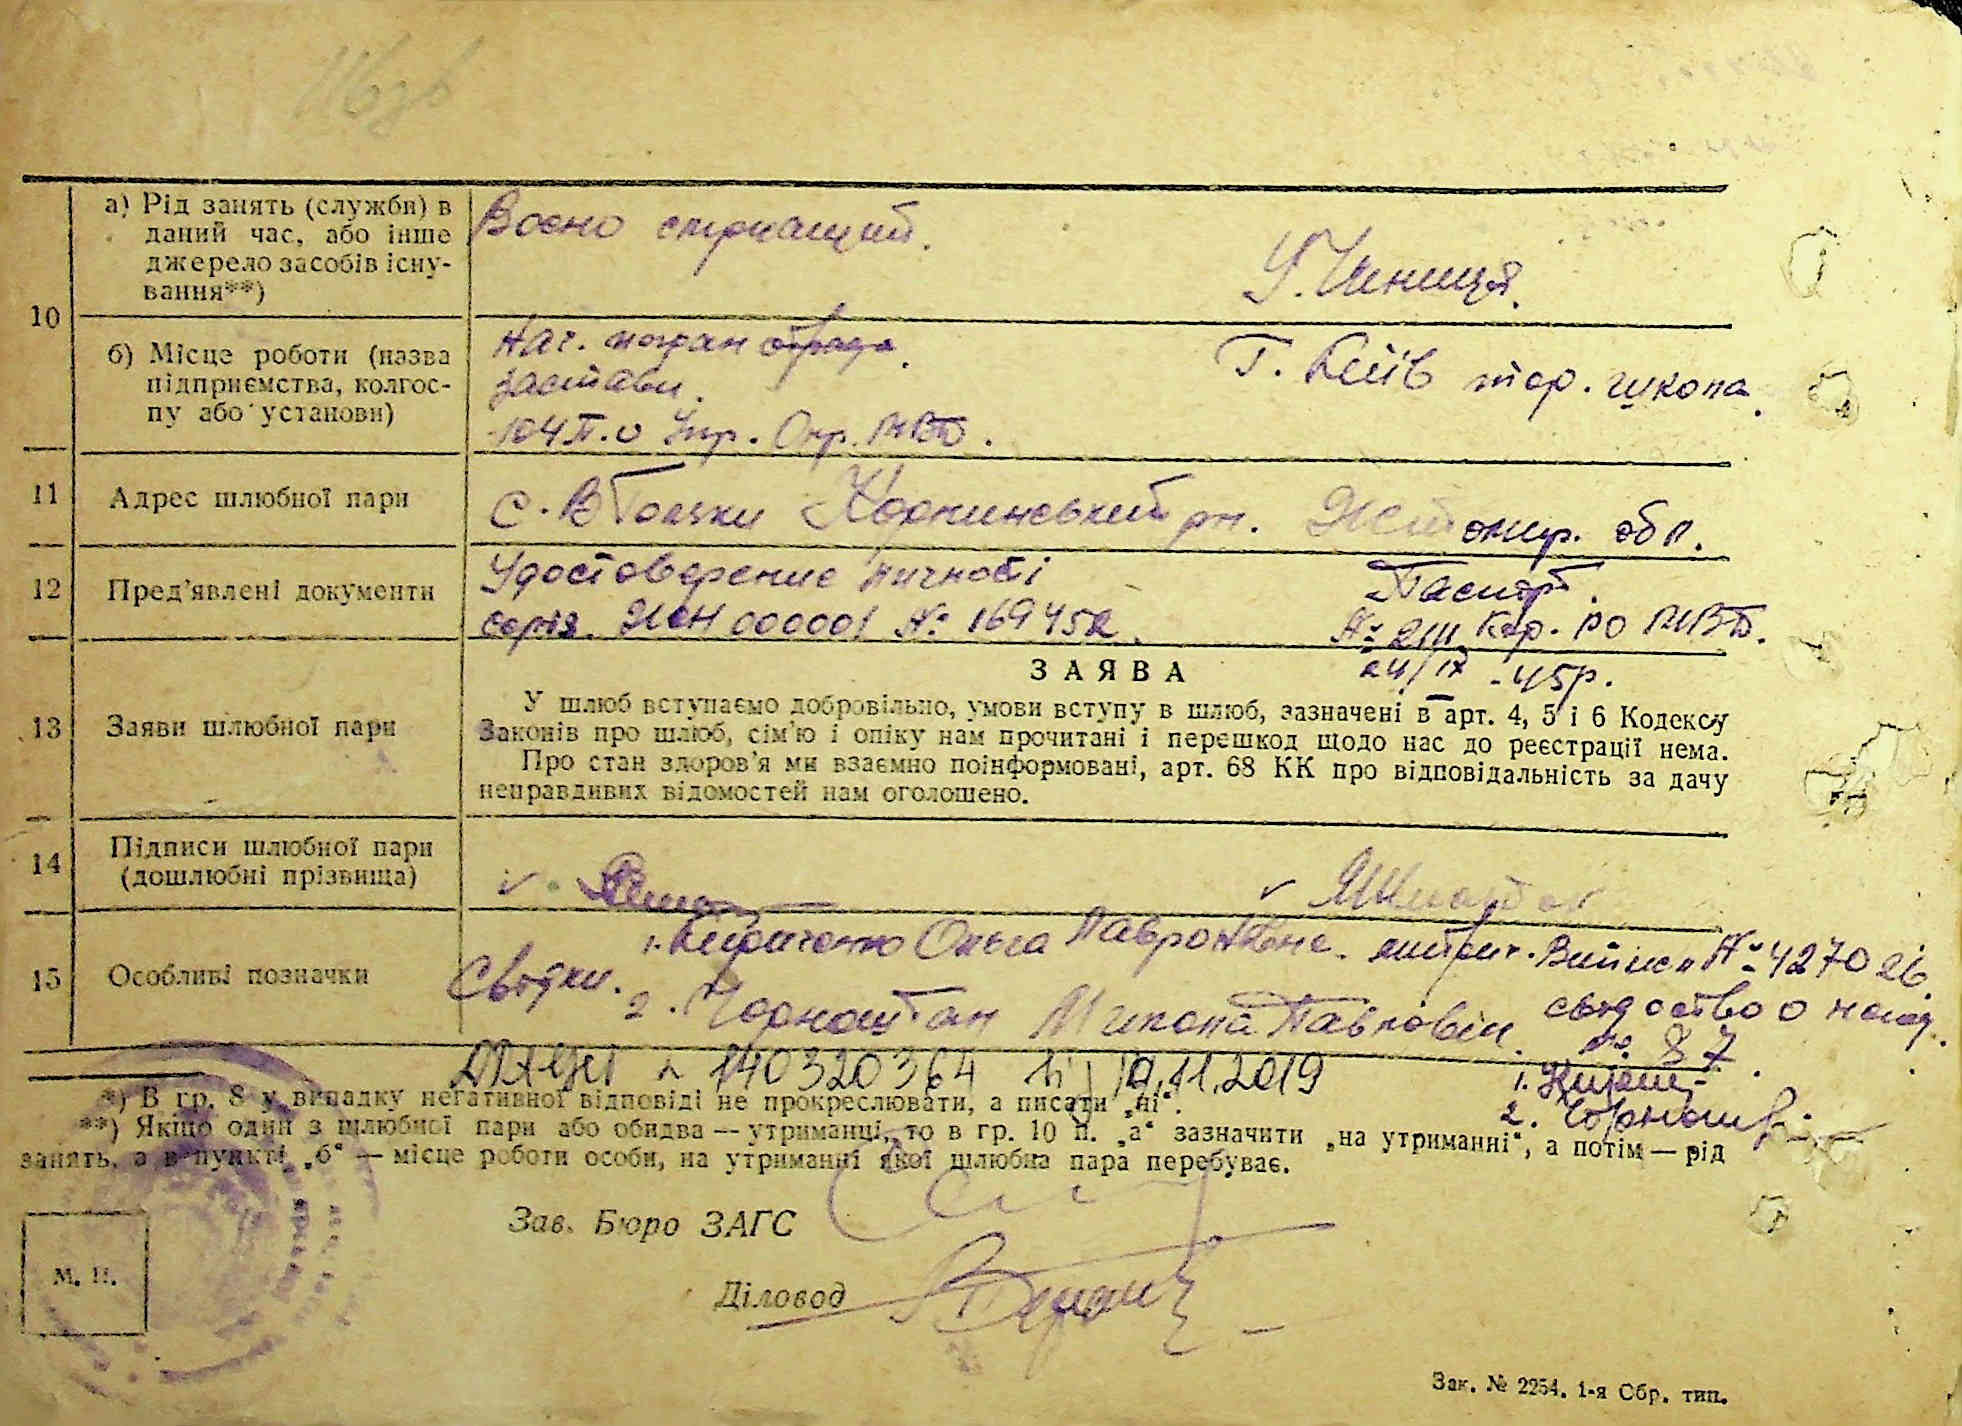 а) Рід занять (служби) в
даний час, або інше
джерело засобів існу-
вання**)
Воєно служащий.
Учениця.
10
б) Місце роботи (назва
підприємства, колгос-
пу або установи)
Нач. погран отряда
застави.
104 П.о Укр. Окр. МВД.
Г. Київ тор. школа.
11
Адрес шлюбної пари
с. В Голяки Корнинський рн. Житомир. обл.
12
Пред'явлені документи
Удостоверение личності
серія. ЖСН 000001 № 169452.
Паспорт.
№ 2111 Кор. РО МВД.
24/IX - 45р.
ЗАЯВА
13
Заяви шлюбної пари
У шлюб вступаємо добровільно, умови вступу в шлюб, зазначені в арт. 4, 5 і 6 Кодексу
Законів про шлюб, сім'ю і опіку нам прочитані і перешкод щодо нас до реєстрації нема.
Про стан здоров'я ми взаємно поінформовані, арт. 68 КК про відповідальність за дачу
неправдивих відомостей нам оголошено.
14
Підписи шлюбної пари
(дошлюбні прізвища)
15
Особливі позначки
Свідки.
1. Ольга
2. Чорноштан Микола Павлович.
№ 427026
87
140320364 19.11.2019
1.
2.
*) В гр. 8 у випадку негативної відповіді не прокреслювати, а писати „ні".
**) Якщо один з шлюбної пари або обидва — утриманці, то в гр. 10 п. „а" зазначити „на утриманні", а потім — рід
занять, а в пункті „б" — місце роботи особи, на утриманні якої шлюбна пара перебуває.
Зав. Бюро ЗАГС
М. П.
Діловод
Зак. № 2254. 1-я Сбр. тип.